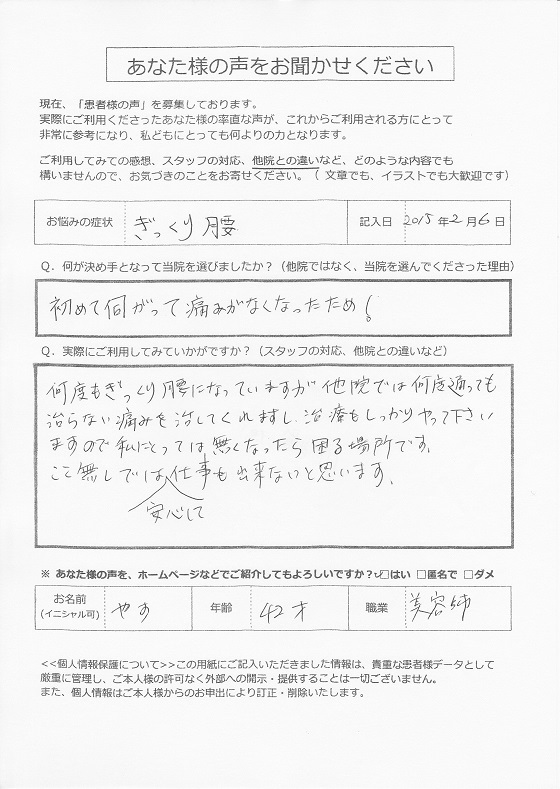 あなた様の声をお聞かせください
現在、「患者様の声」を募集しております。
実際にご利用くださったあなた様の率直な声が、これからご利用される方にとって
非常に参考になり、私どもにとっても何よりの力となります。
ご利用してみての感想、スタッフの対応、他院との違いなど、どのような内容でも
構いませんので、お気づきのことをお寄せください。(文章でも、イラストでも大歓迎です)
お悩みの症状 ぎっくり腰 記入日 2015年2月6日
Q．何が決め手となって当院を選びましたか？（他院ではなく、当院を選んでくださった理由）
初めて伺がって痛みがなくなったため！
Q．実際にご利用してみていかがですか？（スタッフの対応、他院との違いなど）
何度もぎっくり腰になっていますが他院では何度通っても
治らない痛みを治してくれますし、治療もしっかりやって下さい
ますので私にとっては無くなったら困る場所です。
ここ無しでは仕事も出来ないと思います。
安心して
※ あなた様の声を、ホームページなどでご紹介してもよろしいですか？□はい □匿名で □ダメ
お名前 やす 年齢 42才 職業 美容師
(イニシャル可)
<<個人情報保護について>>この用紙にご記入いただきました情報は、貴重な患者様データとして
厳重に管理し、ご本人様の許可なく外部への開示・提供することは一切ございません。
また、個人情報はご本人様からのお申出により訂正・削除いたします。